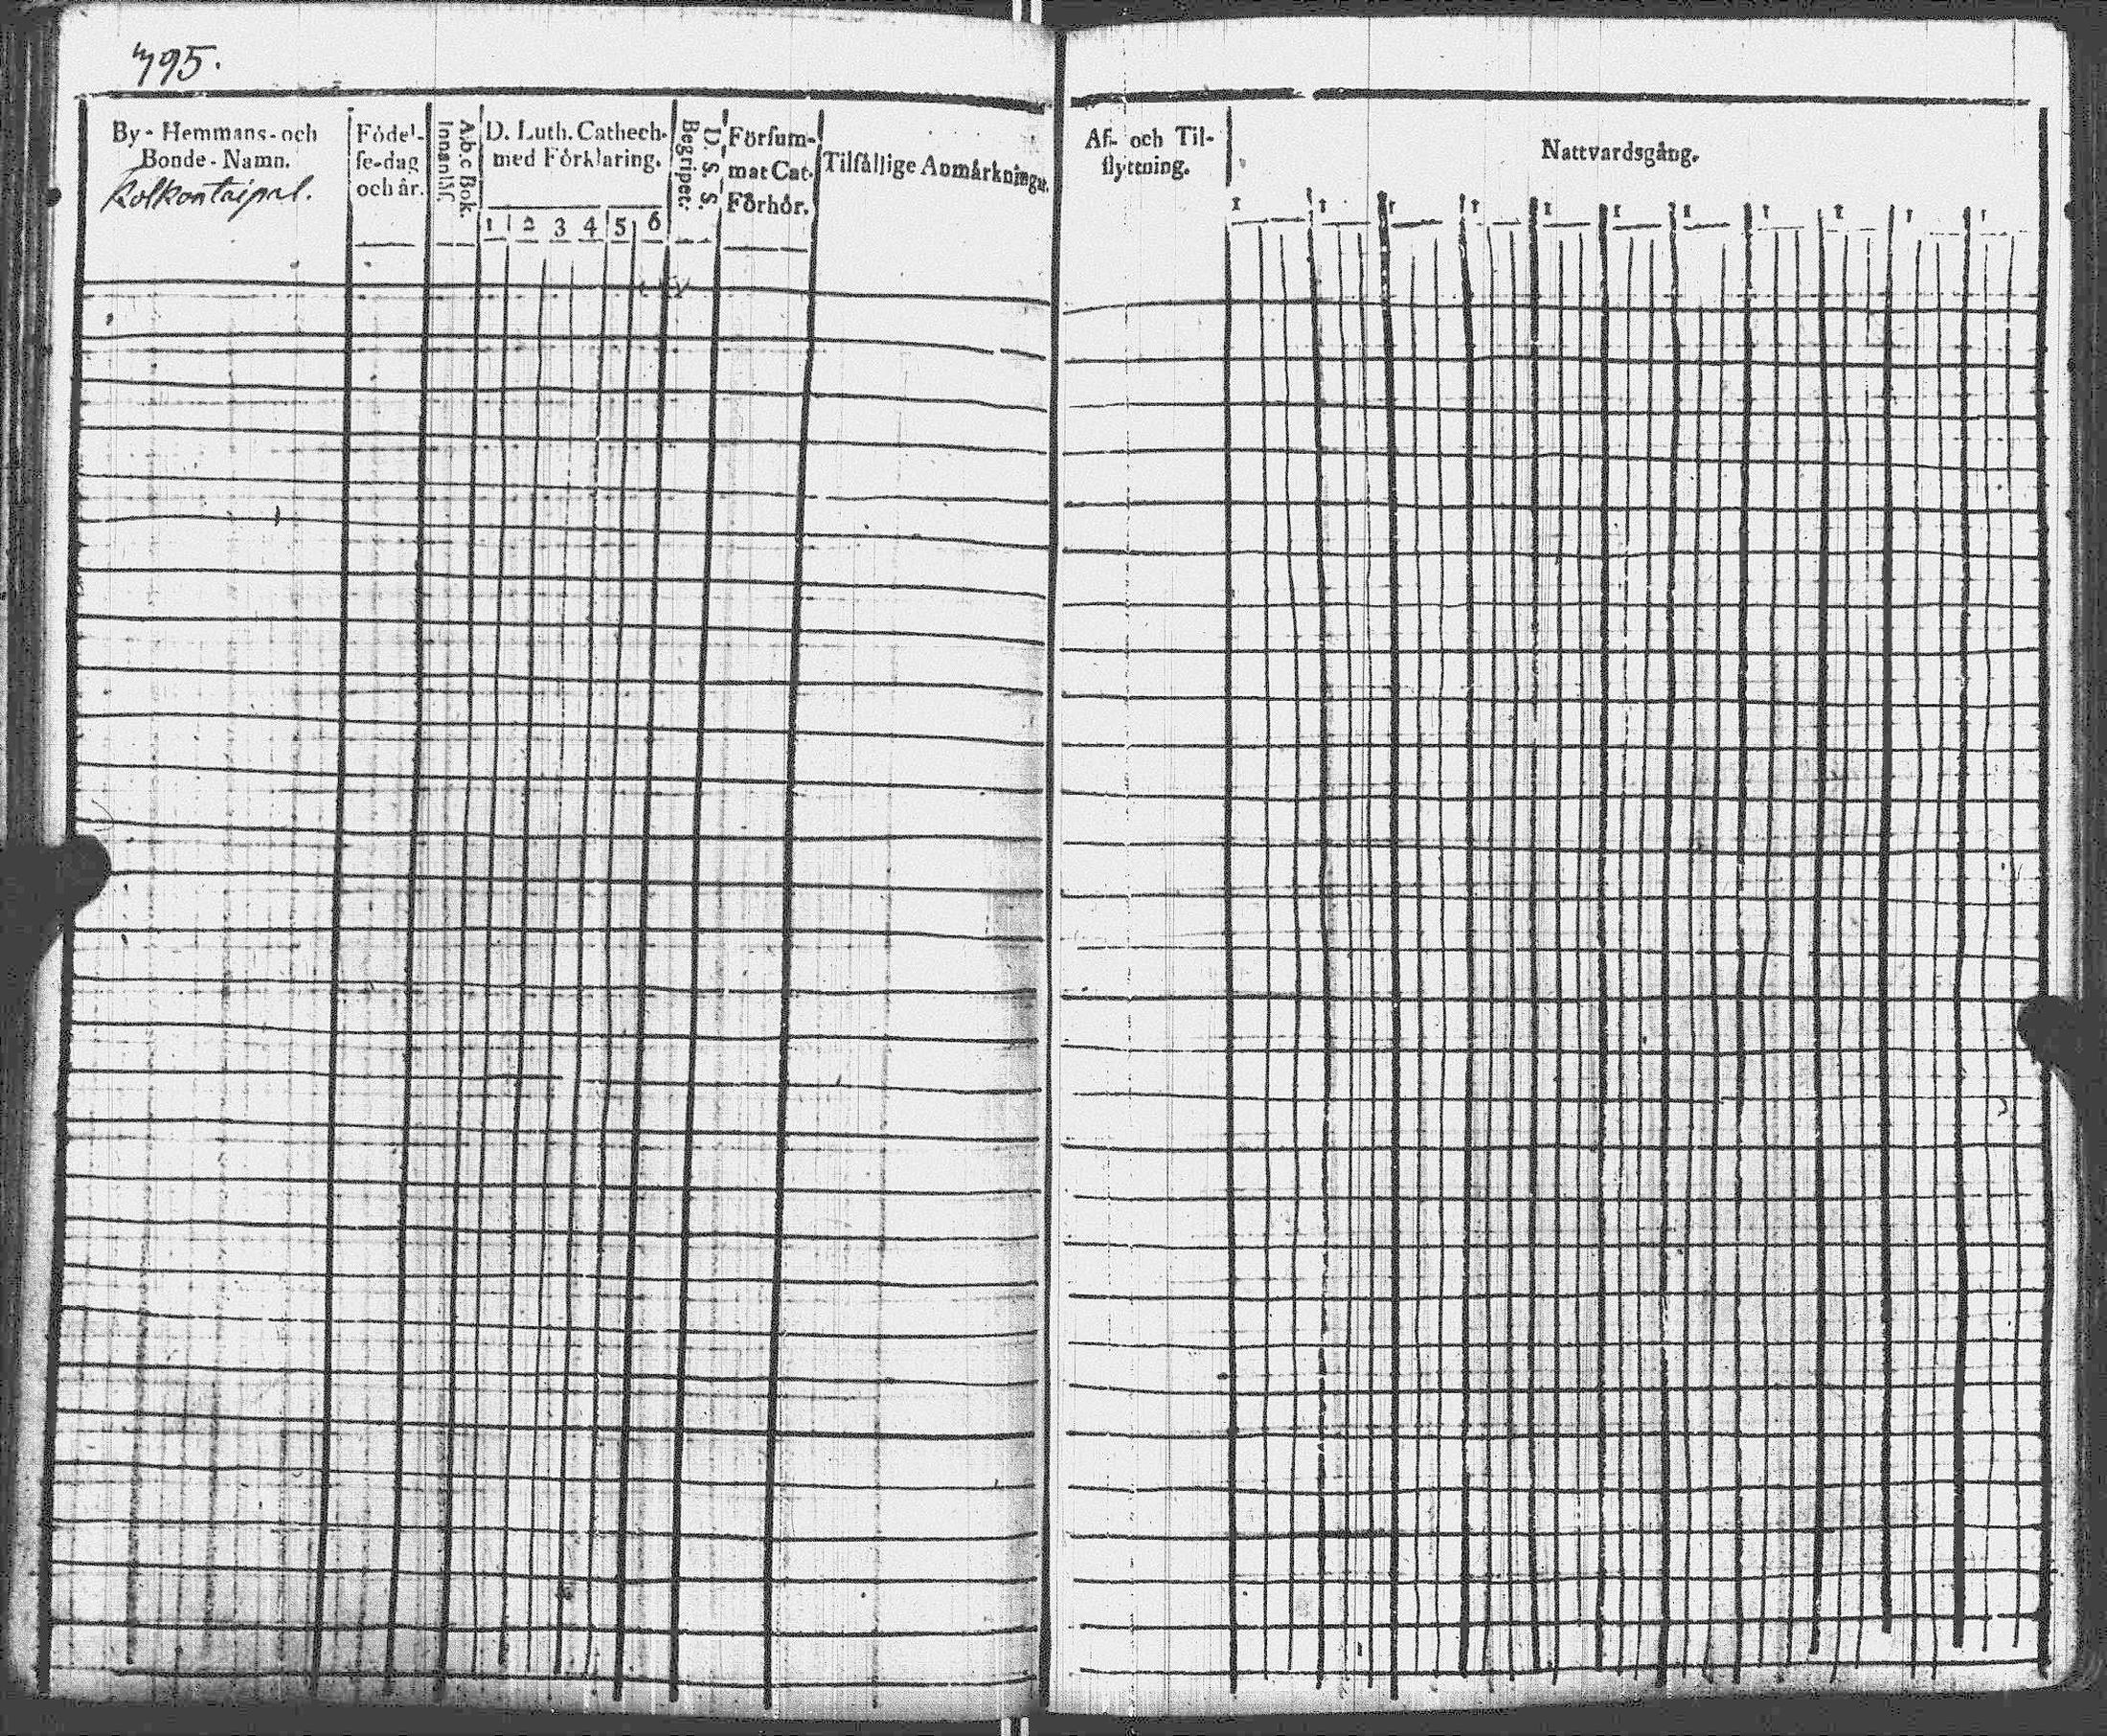 795.
By- Hemmans- och
Bonde-Namn.
Kolkontaipal.
Födel-
se-dag
och år.
A.b.c Bok.
Innanläs.
D. Luth. Cathech.
med Förklaring.
1 2 3 4 5 6
D. S. S.
Begripet.
Försum-
mat Cat.
Förhör.
Tilfällige Anmärkningar.
Af- och Til-
flyttning.
Nattvardsgång.
1 1 1 1 1 1 1 1 1 1 1